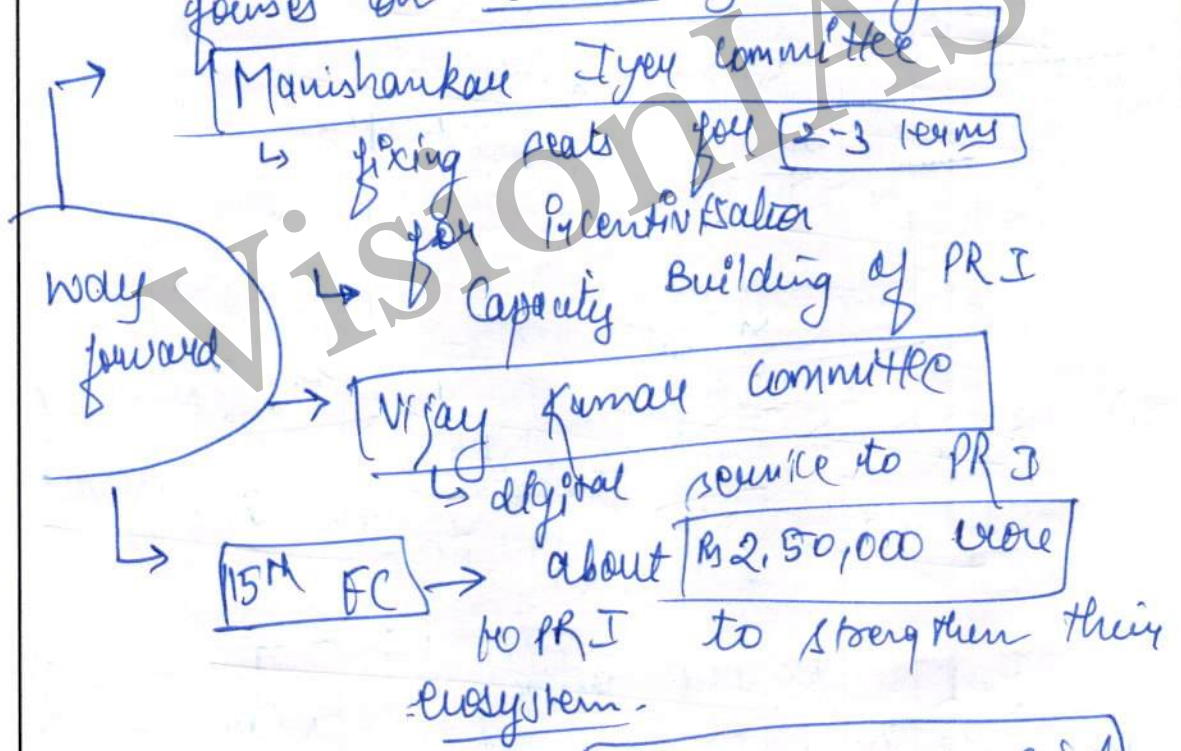 focuses on
Manishankar Iyer Committee
↳ fixing seats for 2-3 terms
for incentivisation
↳ Capacity Building of PRI
way
forward
Vijay Kumar Committee
↳ digital service to PRI
15th FC → about Rs 2,50,000 crore
to PRI to strengthen their
ecosystem.
VisionIAS